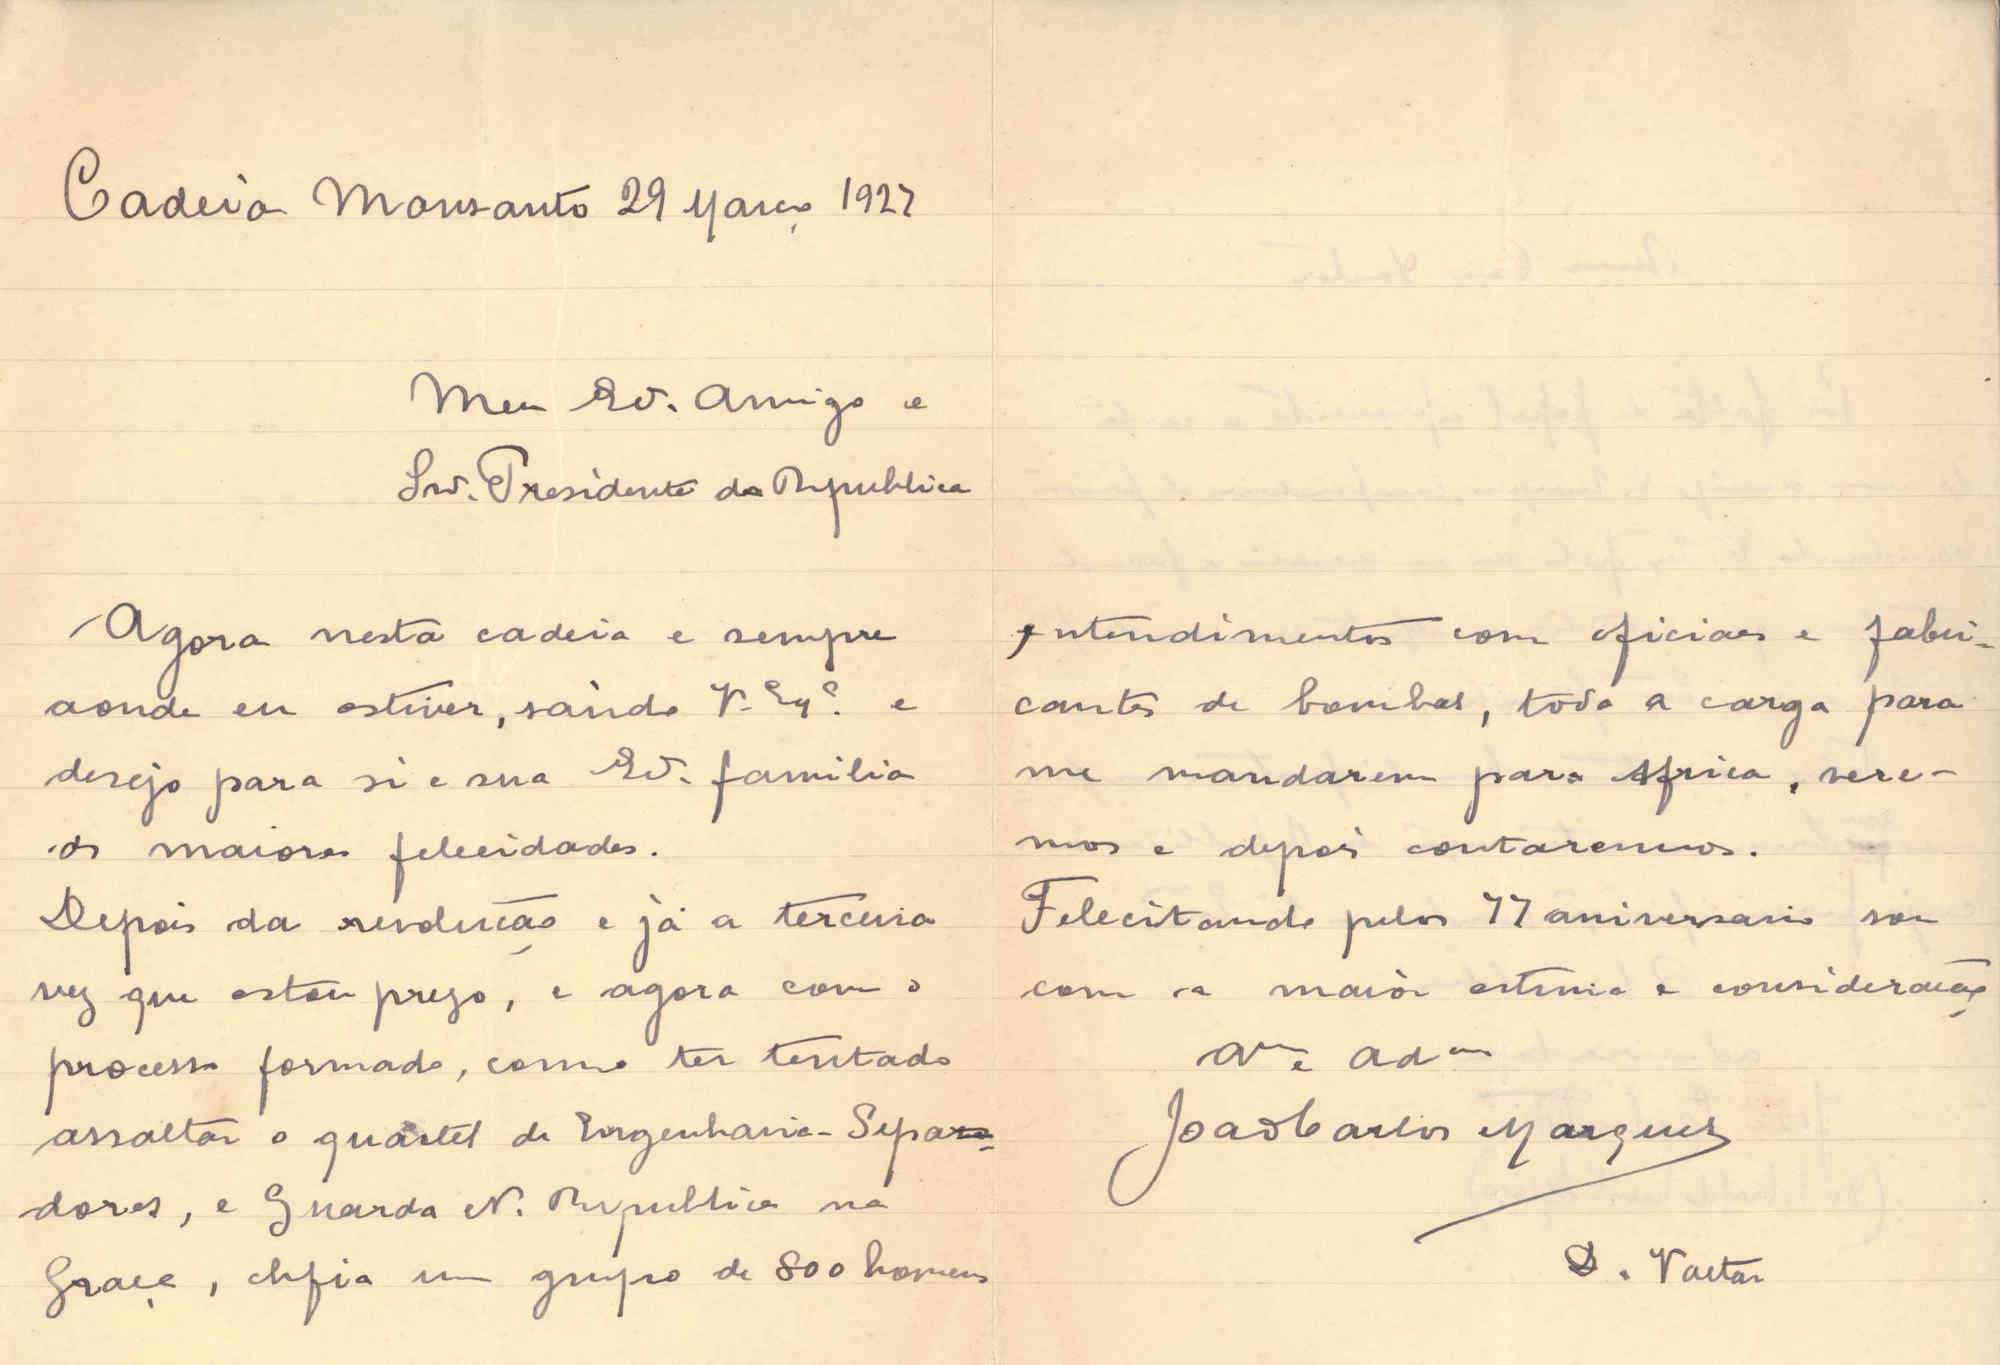 Cadeia Monsanto 29 Março 1927
Meu Ex. Amigo e
Snr. Presidente da Republica
Agora nesta cadeia e sempre
aonde eu estiver, saúdo V. Exª. e
desejo para si e sua Ex. familia
as maiores felecidades.
Depois da revolução e já a terceira
vez que estou prezo, e agora com o
processo formado, como ter tentado
assaltar o quartel de Engenharia - Sepa-
dores, e Guarda N. Republica na
Graça, chfia um grupo de 800 homens
entendimentos com oficiaes e fabri-
cantes de bombas, toda a carga para
me mandarem para Africa, vere-
mos e depois contaremos.
Felecitando pelos 77 aniversario sou
com a maior estima e consideração
Amº e adm
João Carlos Marques
D. Vactar